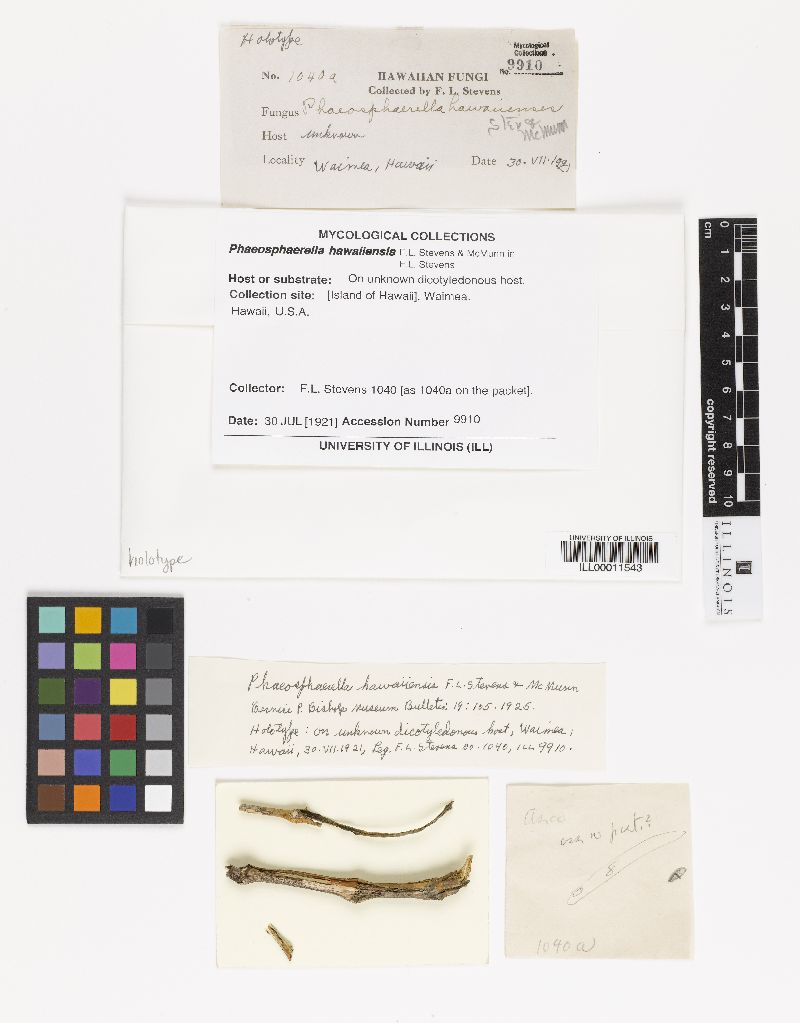 Holotype
Mycological
Collections
No. 9910
No. 1040a HAWAIIAN FUNGI
Collected by F. L. Stevens
Fungus Phaeosphaerella hawaiienses
Stev &
McMunn
Host unknown
Locality Waimea, Hawaii Date 30-VII-1921
MYCOLOGICAL COLLECTIONS
Phaeosphaerella hawaiiensis F.L. Stevens & McMunn in
F.L. Stevens
Host or substrate: On unknown dicotyledonous host.
Collection site: [Island of Hawaii]. Waimea.
Hawaii, U.S.A.
Collector: F.L. Stevens 1040 [as 1040a on the packet].
Date: 30 JUL [1921] Accession Number 9910
UNIVERSITY OF ILLINOIS (ILL)
holotype
UNIVERSITY OF ILLINOIS
ILL00011543
cm
0
1
2
3
4
5
6
7
8
9
10
copyright reserved
ILLINOIS
Phaeosphaerella hawaiiensis F.L. Stevens & McMunn
Bernice P. Bishop Museum Bulletin 19: 105. 1925.
Holotype: on unknown dicotyledonous host, Waimea,
Hawaii, 30-VII-1921, Leg. F. L. Stevens no. 1040, ILL 9910.
8
1040a